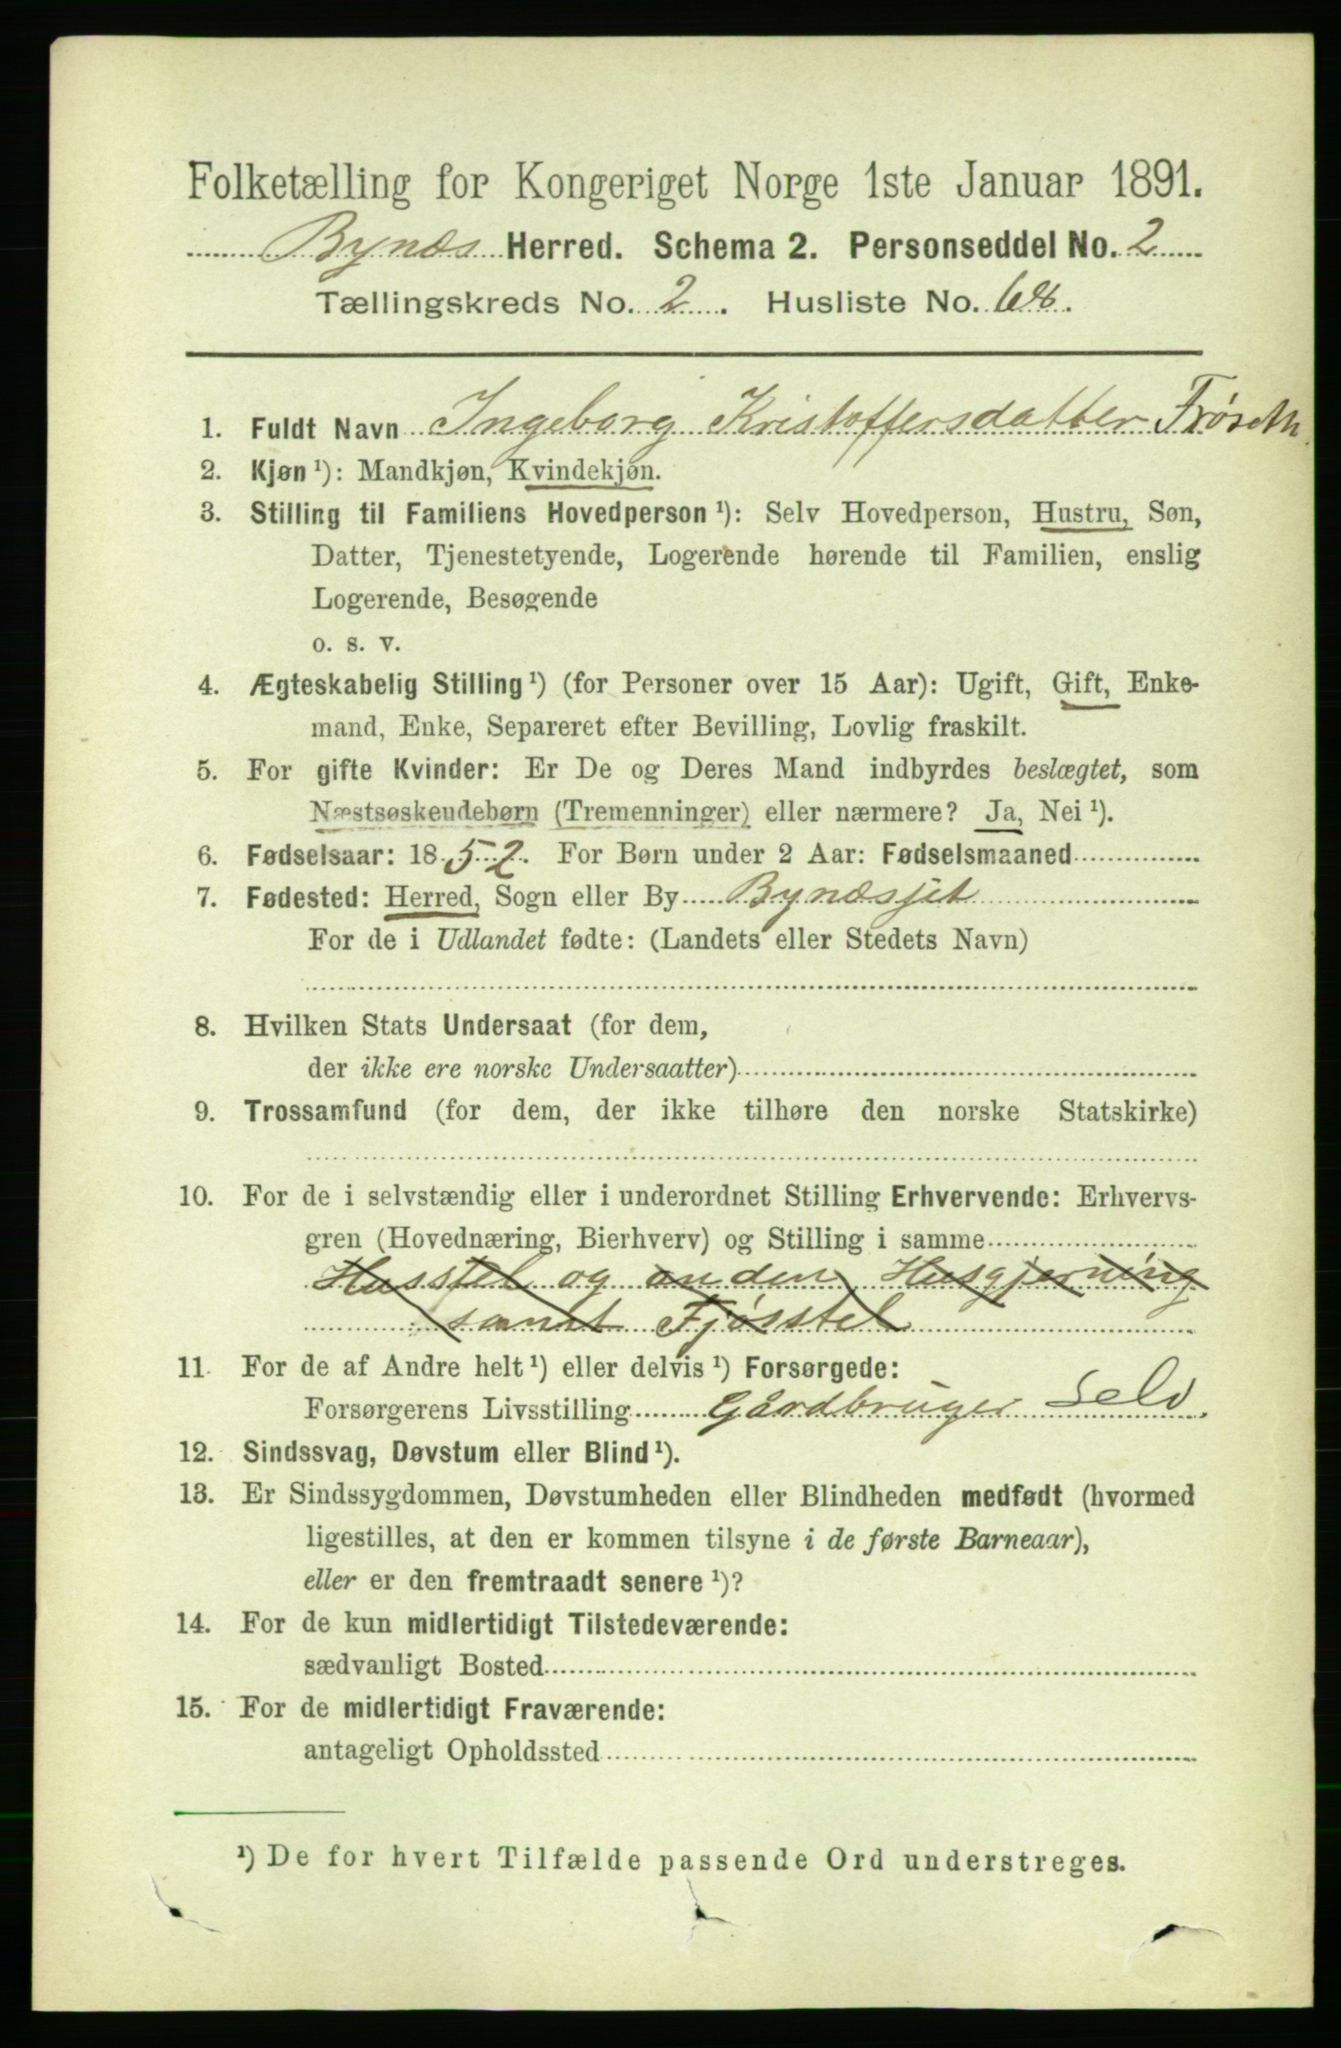 Folketælling for Kongeriget Norge 1ste Januar 1891.
Bynæs Herred. Schema 2. Personseddel No. 2
Tællingskreds No. 2. Husliste No. 68.
1. Fuldt Navn Ingeborg Kristoffersdatter Frøseth
2. Kjøn ¹): Mandkjøn, Kvindekjøn.
3. Stilling til Familiens Hovedperson ¹): Selv Hovedperson, Hustru, Søn,
Datter, Tjenestetyende, Logerende hørende til Familien, enslig
Logerende, Besøgende
o. s. v.
4. Ægteskabelig Stilling ¹) (for Personer over 15 Aar): Ugift, Gift, Enke-
mand, Enke, Separeret efter Bevilling, Lovlig fraskilt.
5. For gifte Kvinder: Er De og Deres Mand indbyrdes beslægtet, som
Næstsøskendebørn (Tremenninger) eller nærmere? Ja, Nei ¹).
6. Fødselsaar: 1852. For Børn under 2 Aar: Fødselsmaaned
7. Fødested: Herred, Sogn eller By Bynæsset
For de i Udlandet fødte: (Landets eller Stedets Navn)
8. Hvilken Stats Undersaat (for dem,
der ikke ere norske Undersaatter)
9. Trossamfund (for dem, der ikke tilhøre den norske Statskirke)
10. For de i selvstændig eller i underordnet Stilling Erhvervende: Erhvervs-
gren (Hovednæring, Bierhverv) og Stilling i samme
Husstel og anden Husgjerning
samt Fjøsstel
11. For de af Andre helt ¹) eller delvis ¹) Forsørgede:
Forsørgerens Livsstilling Gårdbruger Selv.
12. Sindssvag, Døvstum eller Blind ¹).
13. Er Sindssygdommen, Døvstumheden eller Blindheden medfødt (hvormed
ligestilles, at den er kommen tilsyne i de første Barneaar),
eller er den fremtraadt senere ¹)?
14. For de kun midlertidigt Tilstedeværende:
sædvanligt Bosted
15. For de midlertidigt Fraværende:
antageligt Opholdssted
¹) De for hvert Tilfælde passende Ord understreges.